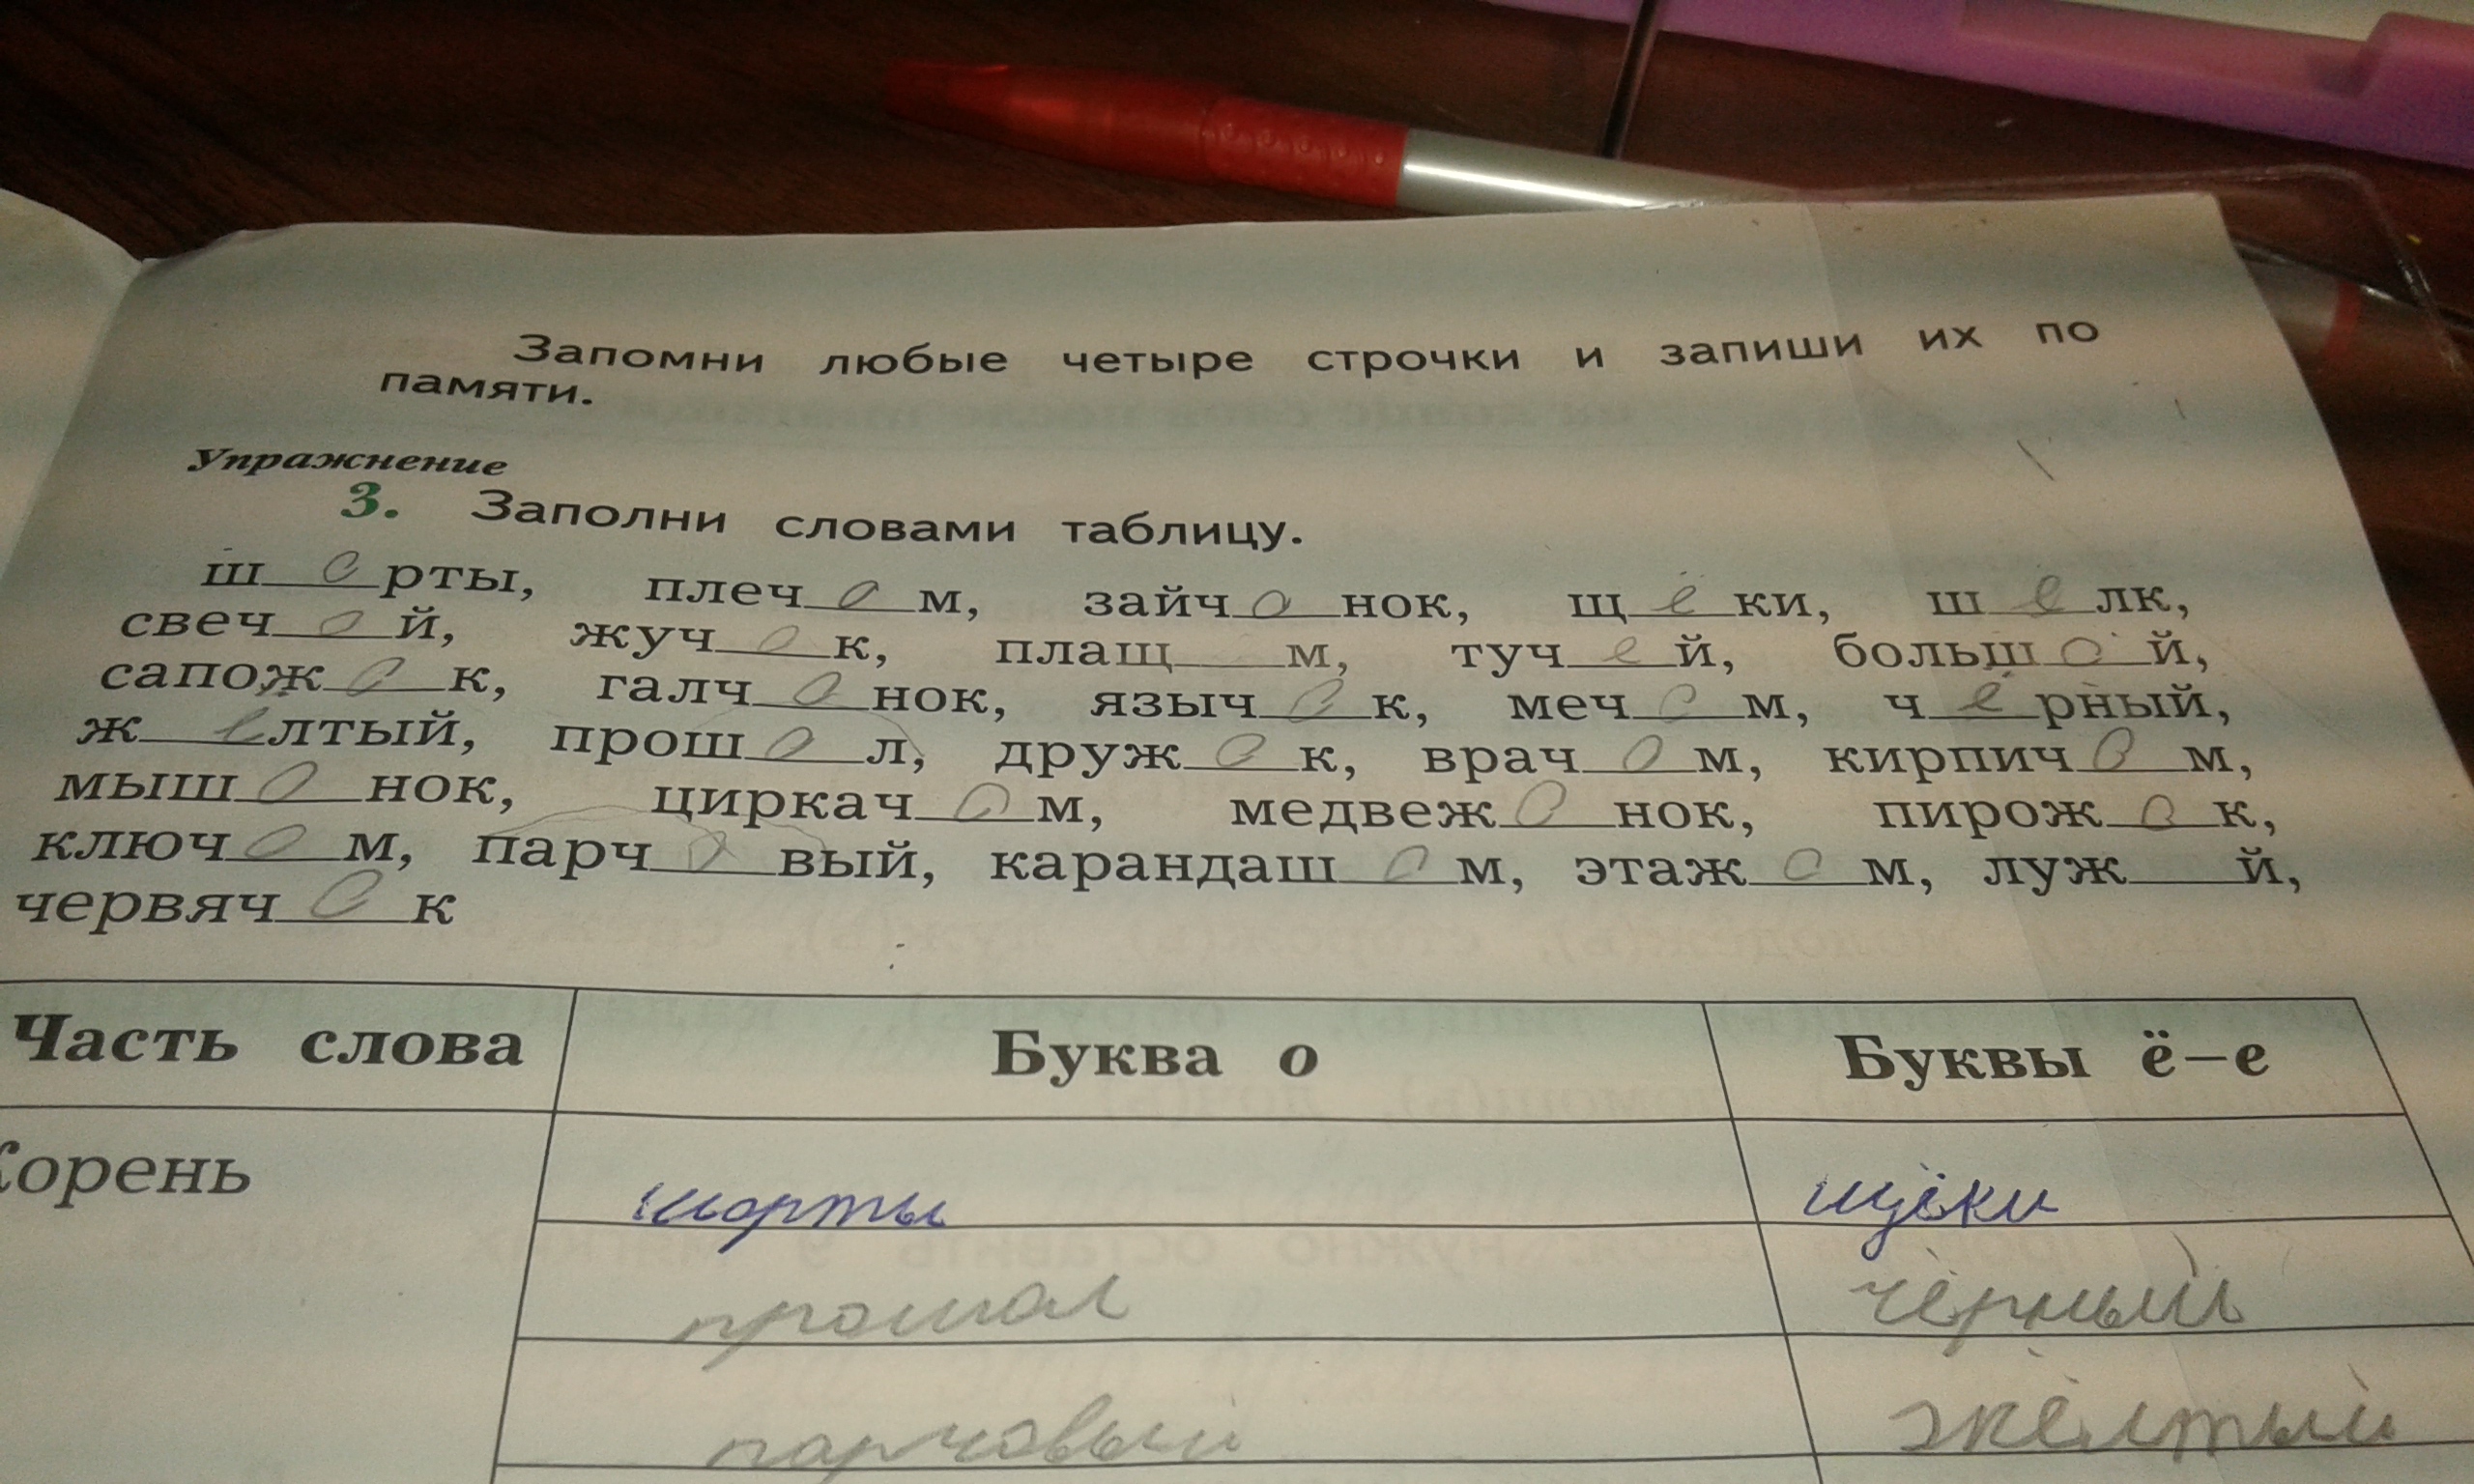 Запомни любые четыре строчки и запиши их по
памяти.
Упражнение
3. Заполни словами таблицу.
ш о рты, плеч о м, зайч о нок, щ ё ки, ш ё лк,
свеч о й, жуч о к, плащ___м, туч е й, больш о й,
сапож о к, галч о нок, языч о к, меч о м, ч ё рный,
ж ё лтый, прош о л, друж о к, врач о м, кирпич о м,
мыш о нок, циркач о м, медвеж о нок, пирож о к,
ключ о м, парч о вый, карандаш о м, этаж о м, луж___й,
червяч о к
Часть слова Буква о Буквы ё–е
Корень шорты щёки
прошол чёрный
парчовый жёлтый